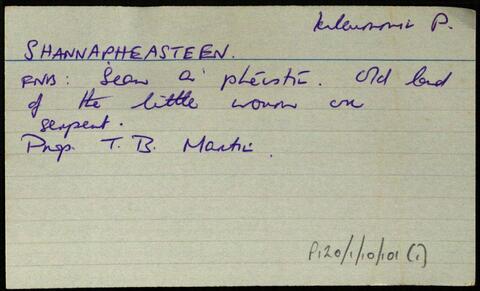 Kilcummin P.
SHANNAPHEASTEEN.
RNB: Sean a' phéistín. Old land
of the little worm or
serpent.
Prop. T. B. Martin.
P120/1/10/101 (1)